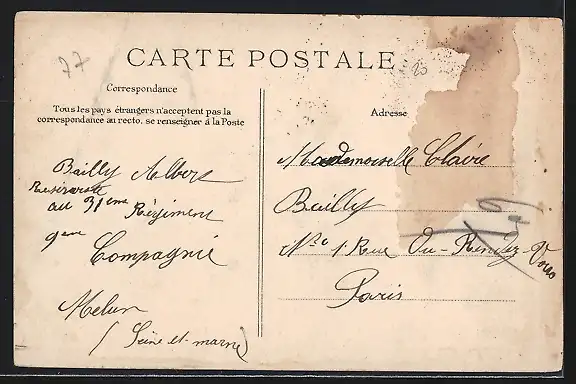 77
CARTE POSTALE
Correspondance
Tous les pays étrangers n'acceptent pas la
correspondance au recto, se renseigner à la Poste
Bailly Albert
Réserviste
au 31ème Régiment
9ème
Compagnie
Melun
(Seine-et-marne)
Adresse
Mademoiselle Claire
Bailly
N° 1 Rue Du-Rendez-Vous
Paris